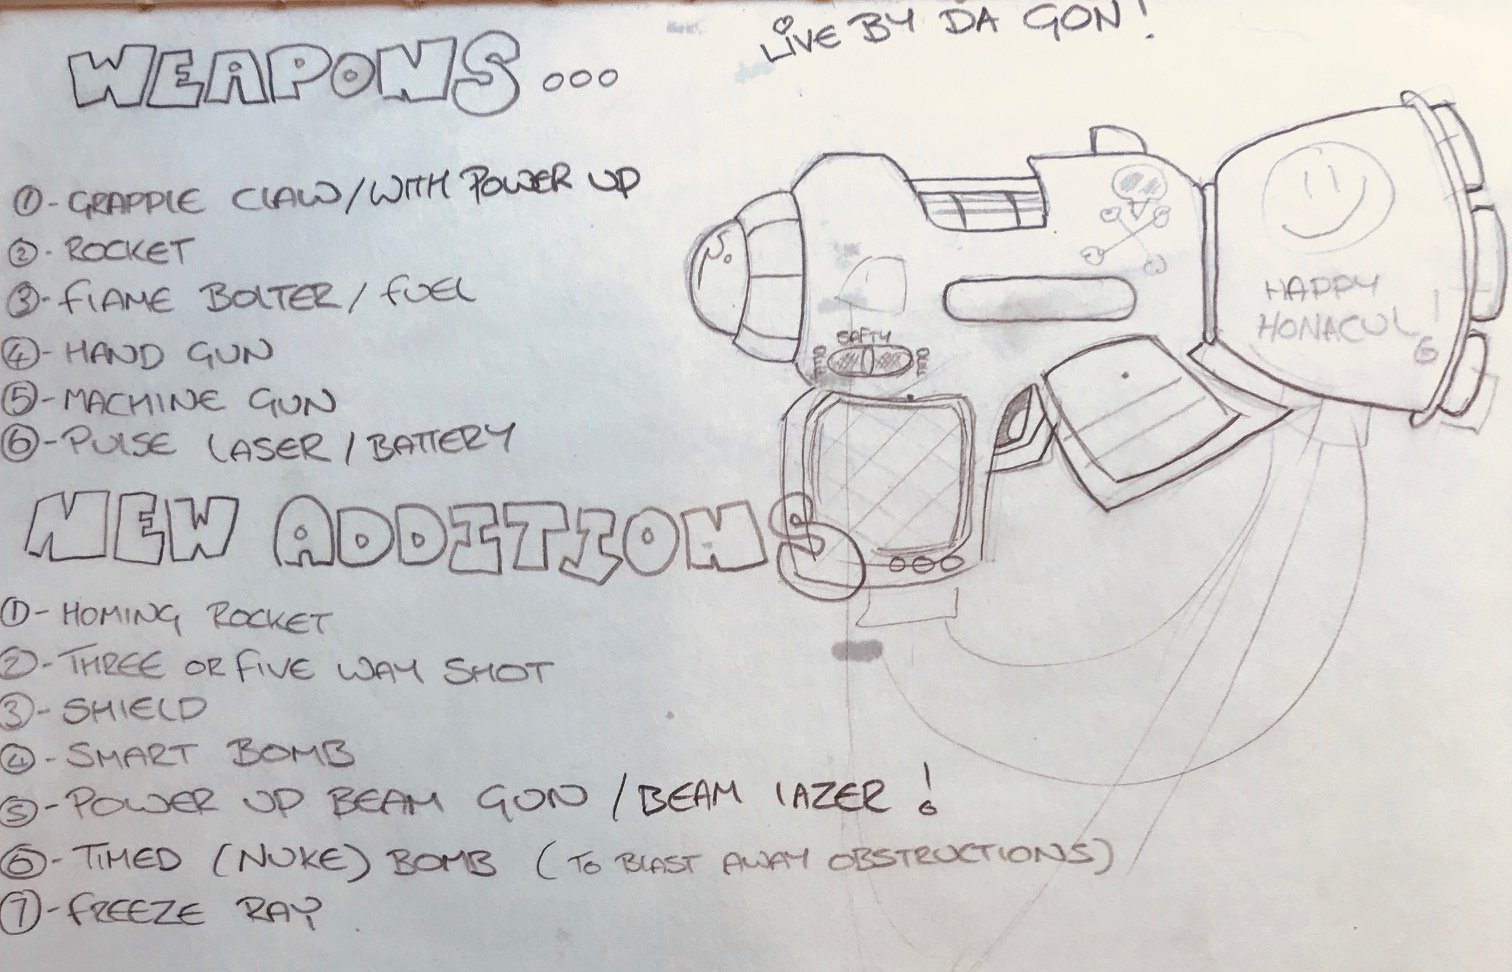 LIVE BY DA GON!
WEAPONS...
①-GRAPPLE CLAW/WITH POWER UP
②-ROCKET
③-FLAME BOLTER/FUEL
④-HAND GUN
⑤-MACHINE GUN
⑥-PULSE LASER/BATTERY
SAFTY
HAPPY
HONACUL!
NEW ADDITIONS
①-HOMING ROCKET
②-THREE OR FIVE WAY SHOT
③-SHIELD
④-SMART BOMB
⑤-POWER UP BEAM GUN/BEAM LAZER!
⑥-TIMED (NUKE) BOMB (TO BLAST AWAY OBSTRUCTIONS)
⑦-FREEZE RAY